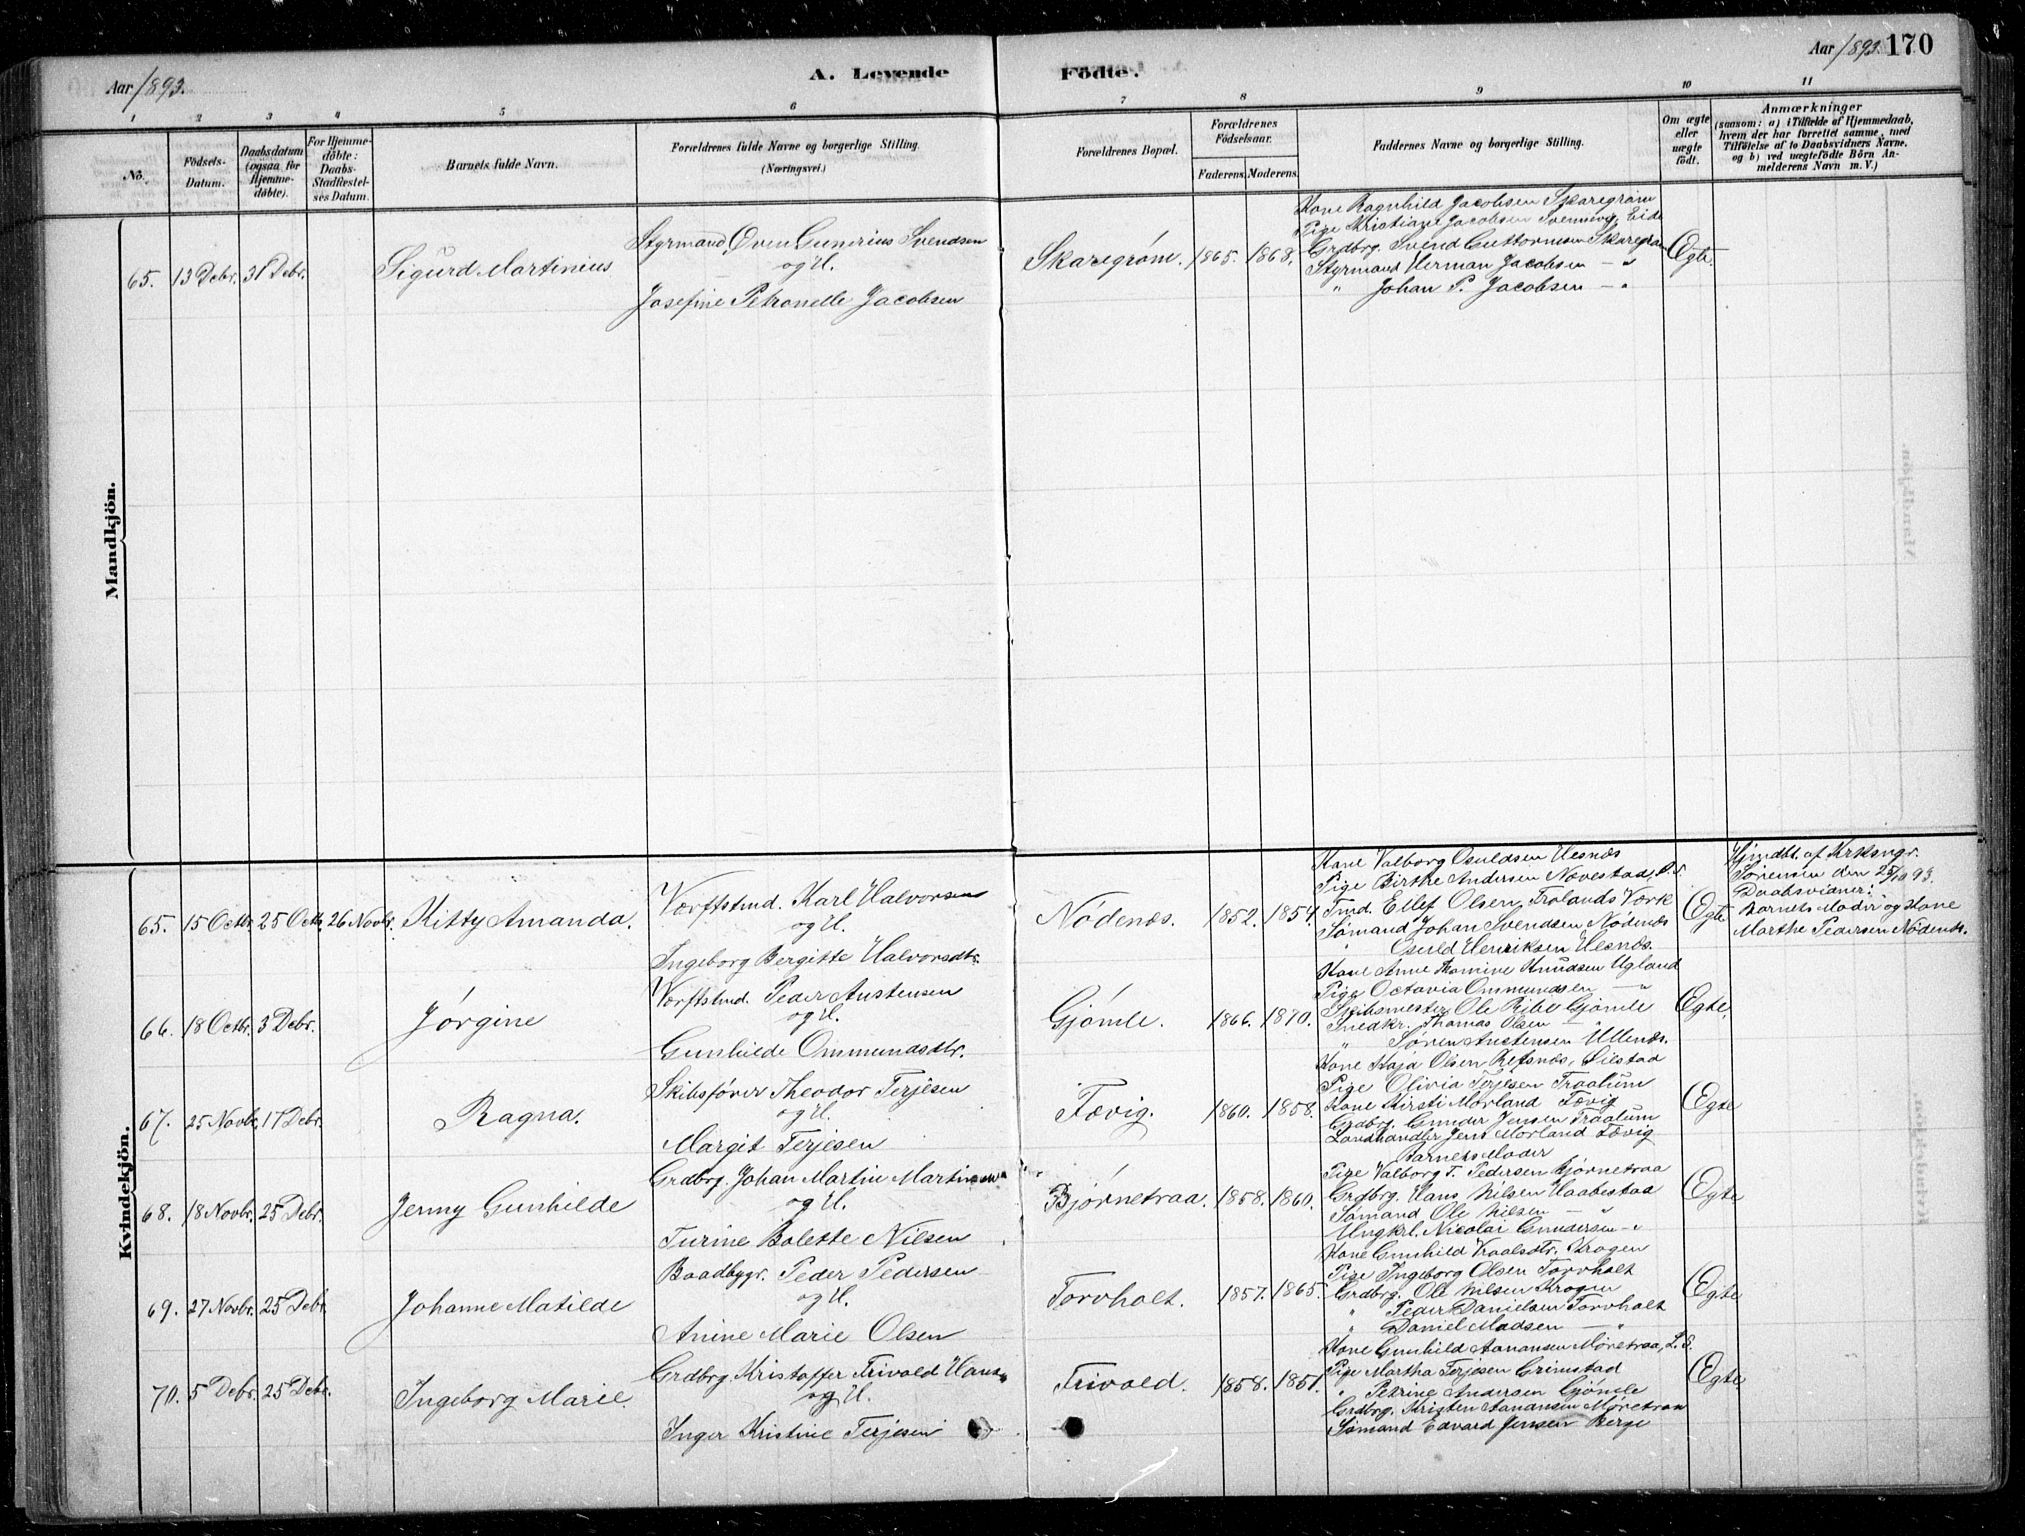 Aar 1893.
A. Levende
Födte.
Aar 1893. 170
1 2 3 4 5 6 7 8 9 10 11
No.
Födsels-Datum.
Daabsdatum (ogsaa for Hjemme-döbte).
For Hjemme-döbte: Daabs-Stadfæstel-ses Datum.
Barnets fulde Navn.
Forældrenes fulde Navne og borgerlige Stilling.
(Næringsvei.)
Forældrenes Bopæl.
Forældrenes Födselsaar.
Faderens. Moderens.
Faddernes Navne og borgerlige Stilling.
Om ægte eller uægte födt.
Anmærkninger
(saasom: a) i Tilfælde af Hjemmedaab,
hvem der har forrettet samme, med
Tilföielse af to Daabsvidners Navne.
og b) ved uægtefödte Börn An-
melderens Navn m. V.)
Mandkjön.
65. 13 Debr. 31 Debr.
Sigurd Martinius
Styrmand Oven Gunerius Svendsen
og H.
Josefine Petronelle Jacobsen
Skaregrøm. 1865. 1868.
Kone Ragnhild Jacobsen Skaregrøm
Pige Kristiane Jacobsen Svennevig, Eide
Grdbrg. Svend Guttormsen Skaregrøm
Styrmand Herman Jacobsen — "
" Johan P. Jacobsen — "
Ægte.
Kvindekjön.
65. 15 Octbr. 25 Octb. 26 Novbr.
Kitty Amanda.
Værftstmd. Karl Halvorsen
og H.
Ingeborg Bergitte Halvorsdtr.
Nödenæs. 1852. 1854.
Kone Valborg Osuldsen Hesnæs
Pige Birthe Andersen Nævestad, Ø.
Tmd. Ellef Olsen, Frolands Værk
Sømand Johan Svendsen Nödenæs
" Osuld Henriksen Hesnæs.
Ægte
Hjmdbt. af Krksngr.
Sørensen den 25/10 93.
Daabsvidner:
Barnets Moder og Kone
Marthe Pedersen Nödenæs.
66. 18 Octbr. 3 Debr.
Jørgine
Værftstmd. Peder Austensen
og H.
Gunhilde Ommundsdtr.
Gjömle. 1866. 1870.
Kone Anne Thomine Knudsen Ugland
Pige Octavia Ommundsen — "
Skibsmester Ole Ribe Gjömle
Snedkr. Thomas Olsen — "
" Søren Austensen Ullenæs.
Ægte.
67. 25 Novbr. 17 Debr.
Ragna.
Skibsfører Theodor Terjesen
og H.
Margit Terjesen
Fævig. 1860. 1858.
Kone Kaja Olsen Refsnæs, Lilstad
Pige Olivia Terjesen Traalum
Kone Kirsti Mørland Fævig
Grdbrg. Gunder Jensen Traalum
Landhandler Jens Mørland Fævig
Ægte
68. 18 Novbr. 25 Debr.
Jenny Gunhilde
Grdbrg. Johan Martin Martinsen
og H.
Turine Bolette Nilsen
Bjørnetraa. 1858. 1860.
Barnets Moder
Pige Valborg T. Pedersen Bjørnetraa
Grdbrg. Hans Nilsen Haabestad
Sømand Ole Nilsen — "
Ungkrl. Nicolai Gundersen — "
Ægte
69. 27 Novbr. 25 Debr.
Johanne Matilde
Baadbygr. Peder Pedersen
og H.
Anine Marie Olsen
Torvholt. 1857. 1865.
Kone Gunhild Kroalsdtr. Krogen
Pige Ingeborg Olsen Torvholt
Grdbrg. Ole Nilsen Krogen
" Peder Danielsen Torvholt
" Daniel Madsen — "
Ægte
70. 5 Debr. 25 Debr.
Ingeborg Marie.
Grdbrg. Kristoffer Trivold Hansen
og H.
Inger Kristine Terjesen
Trivold. 1858. 1851.
Kone Gunhild Aanansen Møretraa, L. E.
Pige Martha Terjesen Grimstad
" Petrine Andersen Gjömle
Grdbrg. Kristen Aanansen Møretraa
Sømand Edvard Jensen Berge
Ægte